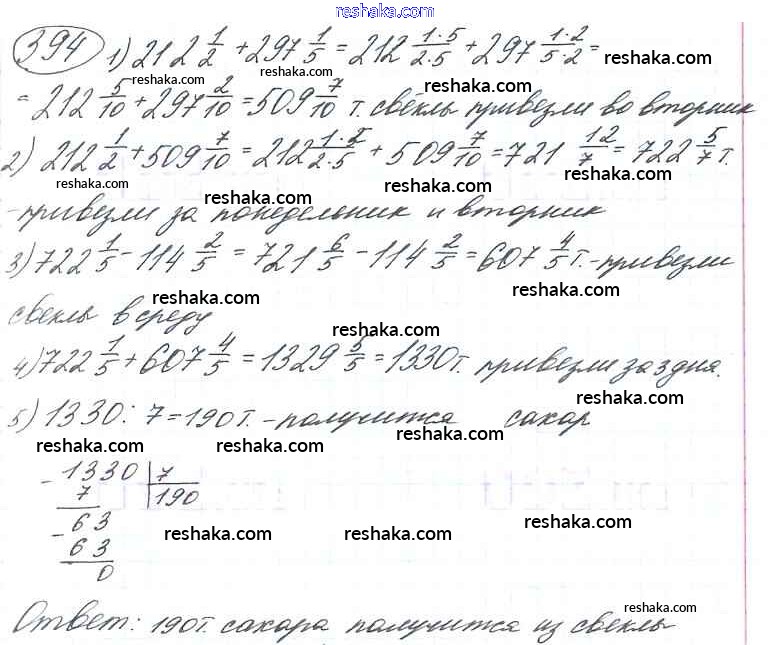 reshaka.com
394 1) 212 1/2 + 297 1/5 = 212 1·5/2·5 + 297 1·2/5·2 =
reshaka.com reshaka.com reshaka.com
= 212 5/10 + 297 2/10 = 509 7/10 т. свёклы привезли во вторник
reshaka.com
2) 212 1/2 + 509 7/10 = 212 1·5/2·5 + 509 7/10 = 721 12/7 = 722 5/7 т.
reshaka.com reshaka.com reshaka.com reshaka.com
-привезли за понедельник и вторник
reshaka.com reshaka.com
3) 722 1/5 - 114 2/5 = 721 6/5 - 114 2/5 = 607 4/5 т. - привезли
reshaka.com reshaka.com
свеклы в среду
reshaka.com
4) 722 1/5 + 607 4/5 = 1329 5/5 = 1330 т. привезли за 3 дня.
reshaka.com
5) 1330 : 7 = 190 т. - получится сахар
reshaka.com reshaka.com reshaka.com reshaka.com
- 1330 | 7
7 190
- 63
reshaka.com reshaka.com reshaka.com
63
0
reshaka.com
Ответ: 190 т. сахара получится из свеклы